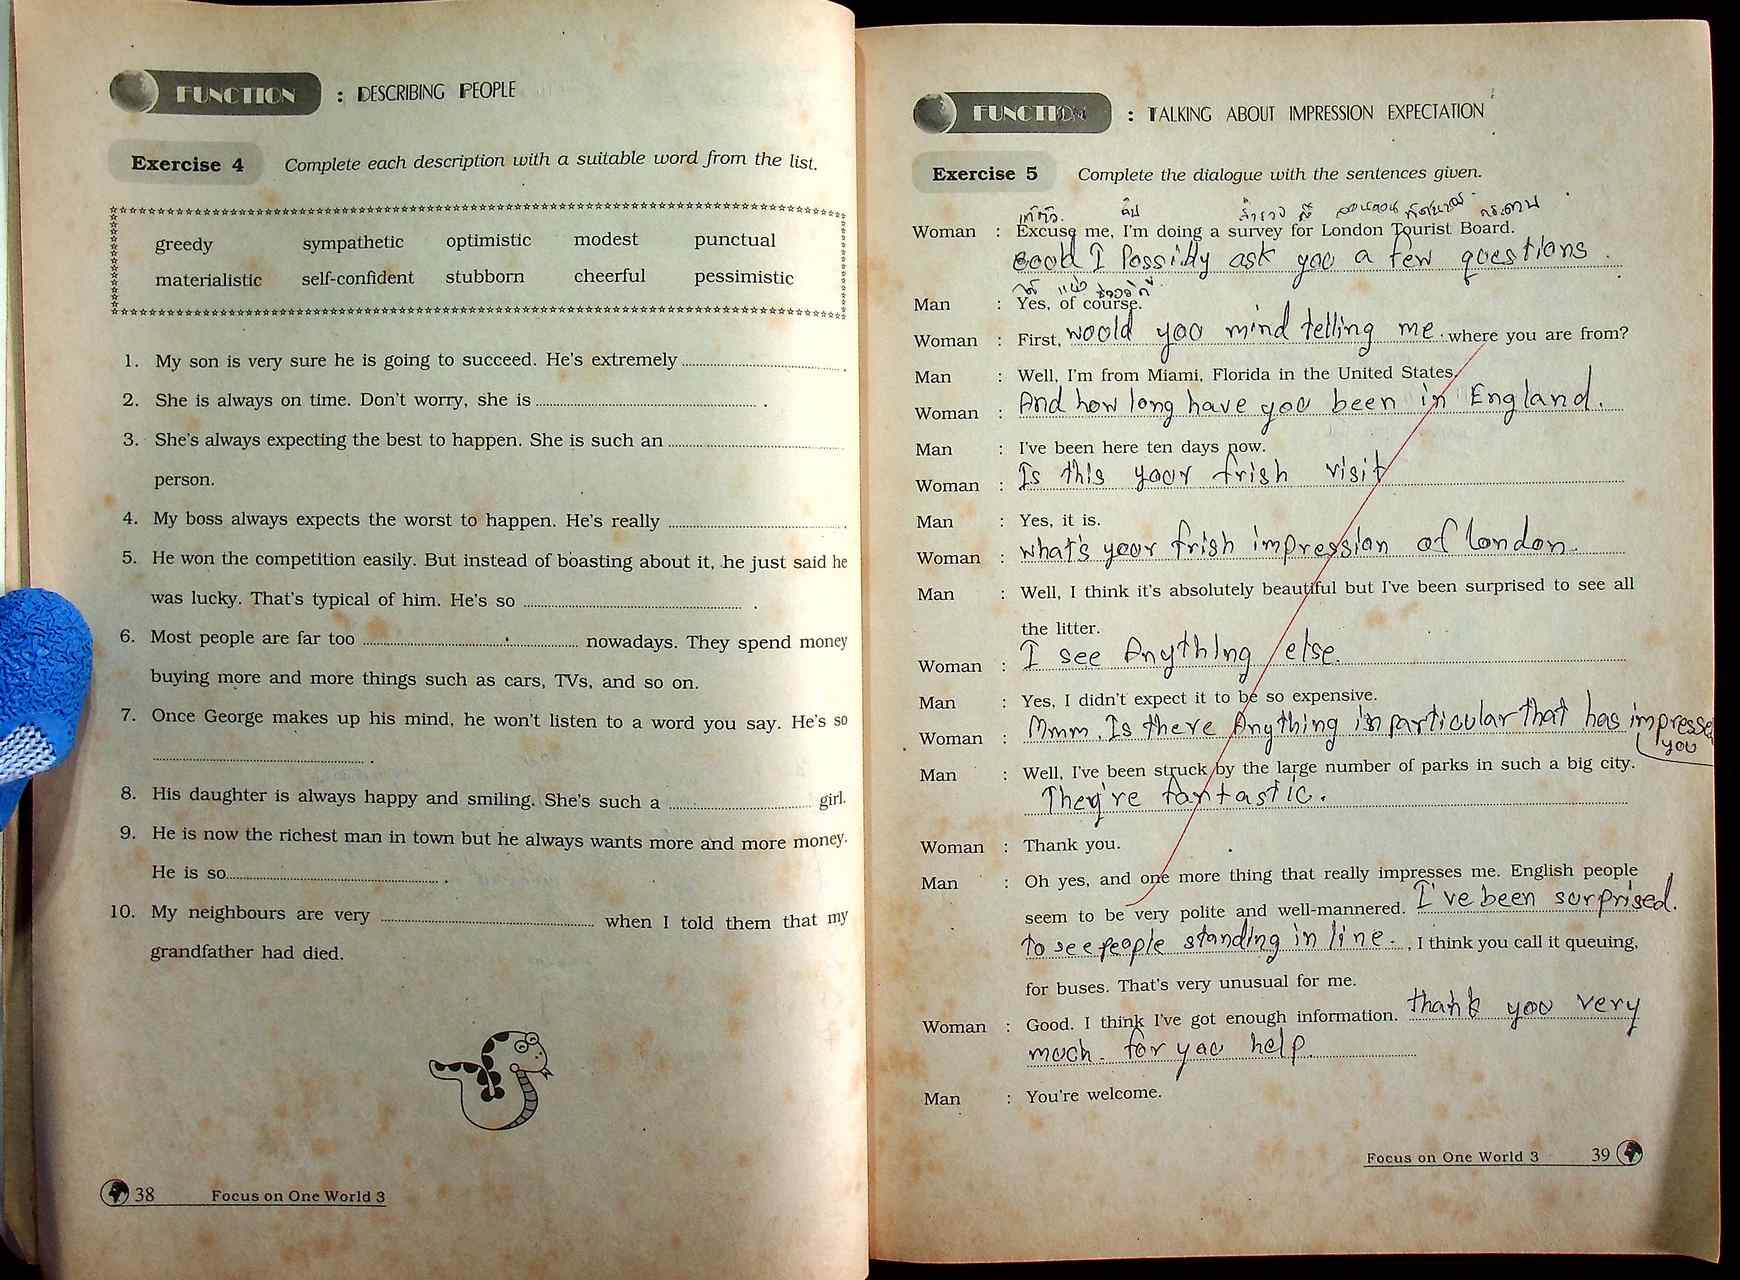 FUNCTION : DESCRIBING PEOPLE
Exercise 4 Complete each description with a suitable word from the list.
greedy sympathetic optimistic modest punctual
materialistic self-confident stubborn cheerful pessimistic
1. My son is very sure he is going to succeed. He's extremely .
2. She is always on time. Don't worry, she is .
3. She's always expecting the best to happen. She is such an
person.
4. My boss always expects the worst to happen. He's really .
5. He won the competition easily. But instead of boasting about it, he just said he
was lucky. That's typical of him. He's so .
6. Most people are far too nowadays. They spend money
buying more and more things such as cars, TVs, and so on.
7. Once George makes up his mind, he won't listen to a word you say. He's so
.
8. His daughter is always happy and smiling. She's such a girl.
9. He is now the richest man in town but he always wants more and more money.
He is so .
10. My neighbours are very when I told them that my
grandfather had died.
38 Focus on One World 3
FUNCTION : TALKING ABOUT IMPRESSION EXPECTATION
Exercise 5 Complete the dialogue with the sentences given.
Woman : Excuse me, I'm doing a survey for London Tourist Board.
could I Possibly ask you a few questions .
Man : Yes, of course.
Woman : First, woold you mind telling me. where you are from?
Man : Well, I'm from Miami, Florida in the United States.
Woman : And how long have you been in England.
Man : I've been here ten days now.
Woman : Is this your frish visit
Man : Yes, it is.
Woman : what's your frish impression of london.
Man : Well, I think it's absolutely beautiful but I've been surprised to see all
the litter.
Woman : I see Anything else.
Man : Yes, I didn't expect it to be so expensive.
Woman : Mmm. Is there Anything in particular that has impressed
you
Man : Well, I've been struck by the large number of parks in such a big city.
They're fantastic.
Woman : Thank you.
Man : Oh yes, and one more thing that really impresses me. English people
seem to be very polite and well-mannered. I've been surprised.
to see people standing in line. , I think you call it queuing,
for buses. That's very unusual for me.
Woman : Good. I think I've got enough information. thank you very
much. for you help.
Man : You're welcome.
Focus on One World 3 39